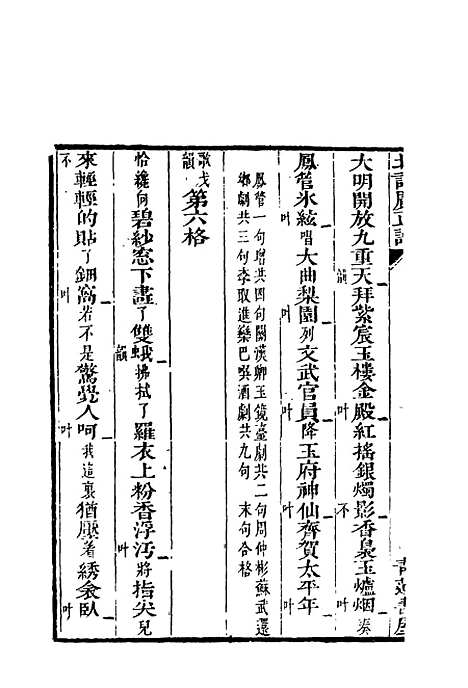 北詞廣正譜
青蓮書屋
大明開放九重天韻拜紫宸玉樓金殿叶紅搖銀燭影不香裊玉爐烟叶奏
鳳管氷絃叶唱大曲梨園叶列文武官員叶降玉府神仙叶齊賀太平年叶
鳳管一句增共四句關漢卿玉鏡臺劇共二句周仲彬蘇武還
鄉劇共三句李取進欒巴噀酒劇共九句 末句合格
歌戈韻 第六格
恰纔向碧紗窓下畫了雙蛾韻拂拭了羅衣上粉香浮汚叶將指尖兒
來不輕輕的貼了鈿窩叶若不是驚覺人呵叶我這裏猶壓着綉衾臥叶